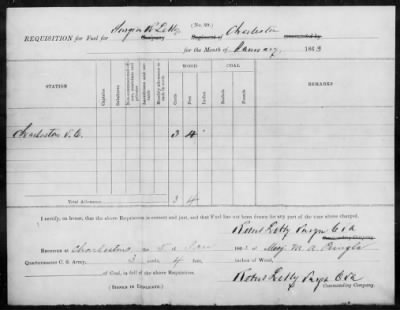 (No. 40.)
REQUISITION for Fuel for Surgeon R Lebby Company Regiment of Charleston commanded by
for the Month of January, 1863
STATION
Captains
Subalterns
WOOD
COAL
REMARKS
Monthly allowance to each in cords
Cords
Feet
Inches
Bushels
Pecks
Charleston S. C.
3 4
Total Allowance
3 4
I certify, on honor, that the above Requisition is correct and just, and that Fuel has not been drawn for any part of the time above charged.
Robert Lebby Surgn C S A
Commanding Company.
RECEIVED at Charleston, S. C. Jan 1863 of Maj M. A. Pringle
Quartermaster C. S. Army, 3 cords, 4 feet, inches of Wood,
of Coal, in full of the above Requisition.
Robert Lebby Surgn C S A
(SIGNED IN DUPLICATE.)
Commanding Company.